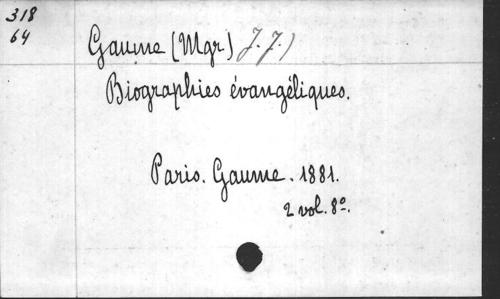 318
64
Gaume (Mgr) J. J.)
Biographies évangéliques.
Paris. Gaume. 1881.
2 vol. 8º.